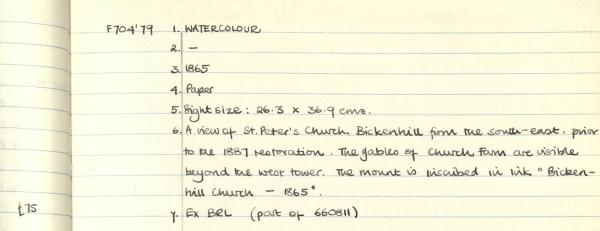 F704'79 1. WATERCOLOUR
2. —
3. 1865
4. Paper
5. Sight size: 26.3 x 36.9 cms.
6. A view of St. Peter's Church, Bickenhill from the south-east, prior
to the 1887 restoration. The gables of Church Farm are visible
beyond the west tower. The mount is inscribed in ink "Bicken-
hill Church - 1865".
£75
7. Ex BRL (part of 660811)